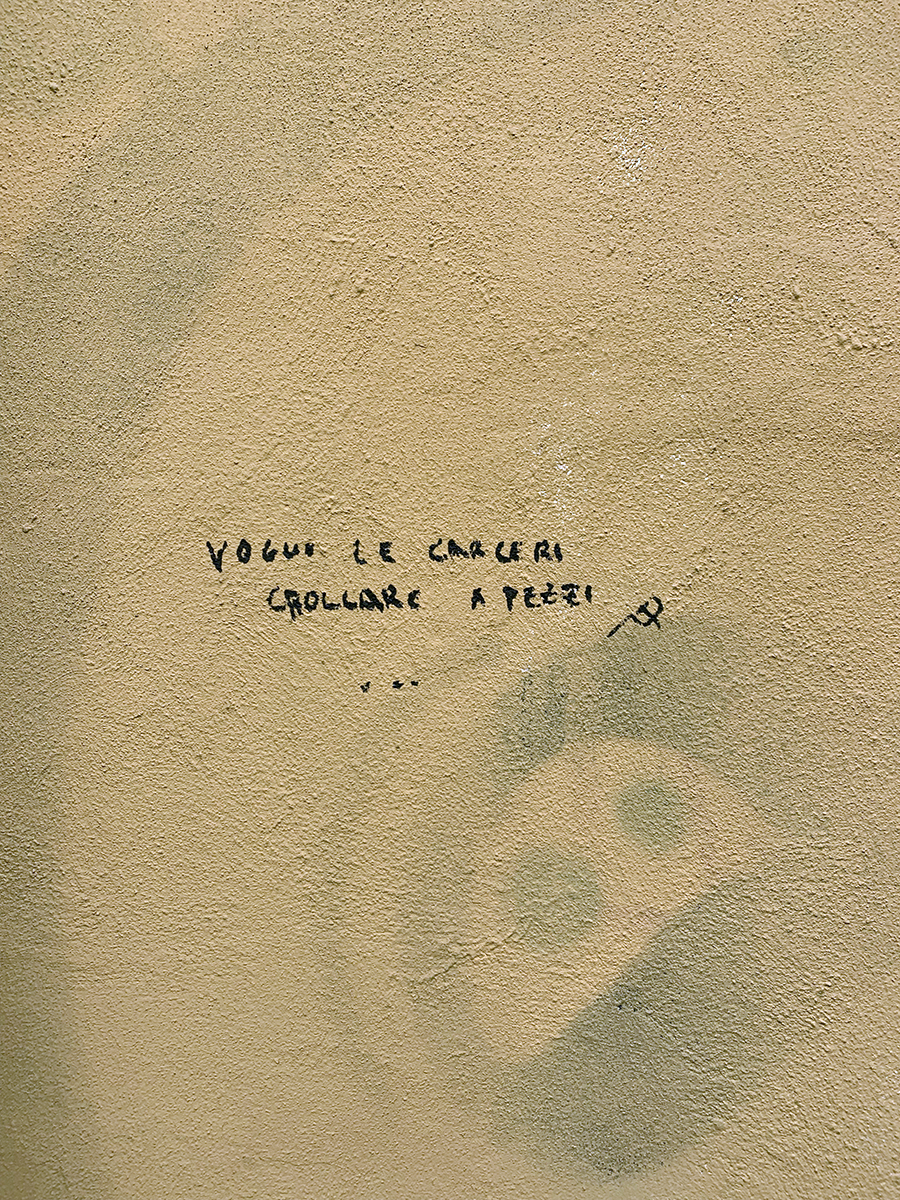 VOGLIO LE CARCERI
CROLLARE A PEZZI
...